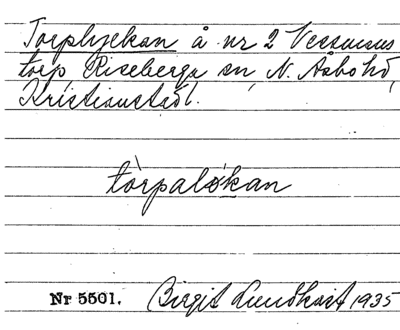 Torplyckan å nr 2 Vessmans
torp, Riseberga sn, N. Åsbo hd,
Kristianstad l.
tòrpaløkan
Nr 5501. Birgit Lundkvist 1935